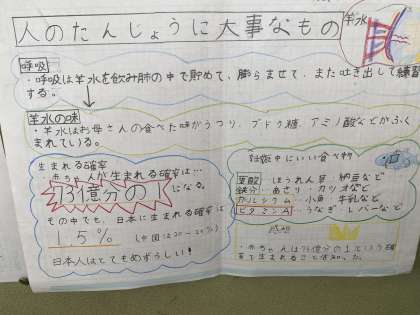 人のたんじょうに大事なもの
羊水
呼吸
・呼吸は羊水を飲み肺の中で貯めて、膨らませて、また吐き出して練習
する。
羊水の味
・羊水はお母さんの食べた味がうつり、ブドウ糖、アミノ酸などがふく
まれている。
生まれる確率
・赤ちゃんが生まれる確率は…
73億分の1になる。
その中でも、日本に生まれる確率は
1.5%
(中国は20～
日本人はとてもめずらしい!
妊娠中にいい食べ物
葉酸…ほうれん草、納豆など
鉄分…あさり、カツオなど
カルシウム…小魚、牛乳など
ビタミンA…うなぎ、レバーなど
感想
・赤ちゃんは73億分の1という確
率で生まれることを知